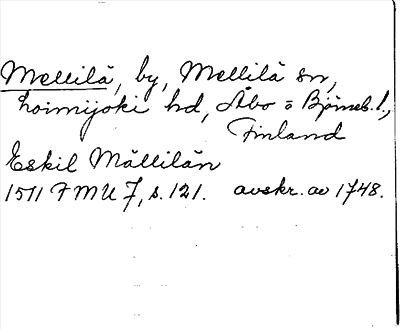 Mellilä, by, Mellilä sn,
Loimijoki hd, Åbo o Björneb. l.,
Finland
Eskil Mällilän
1511 FMU 7, s. 121. avskr. av 1748.